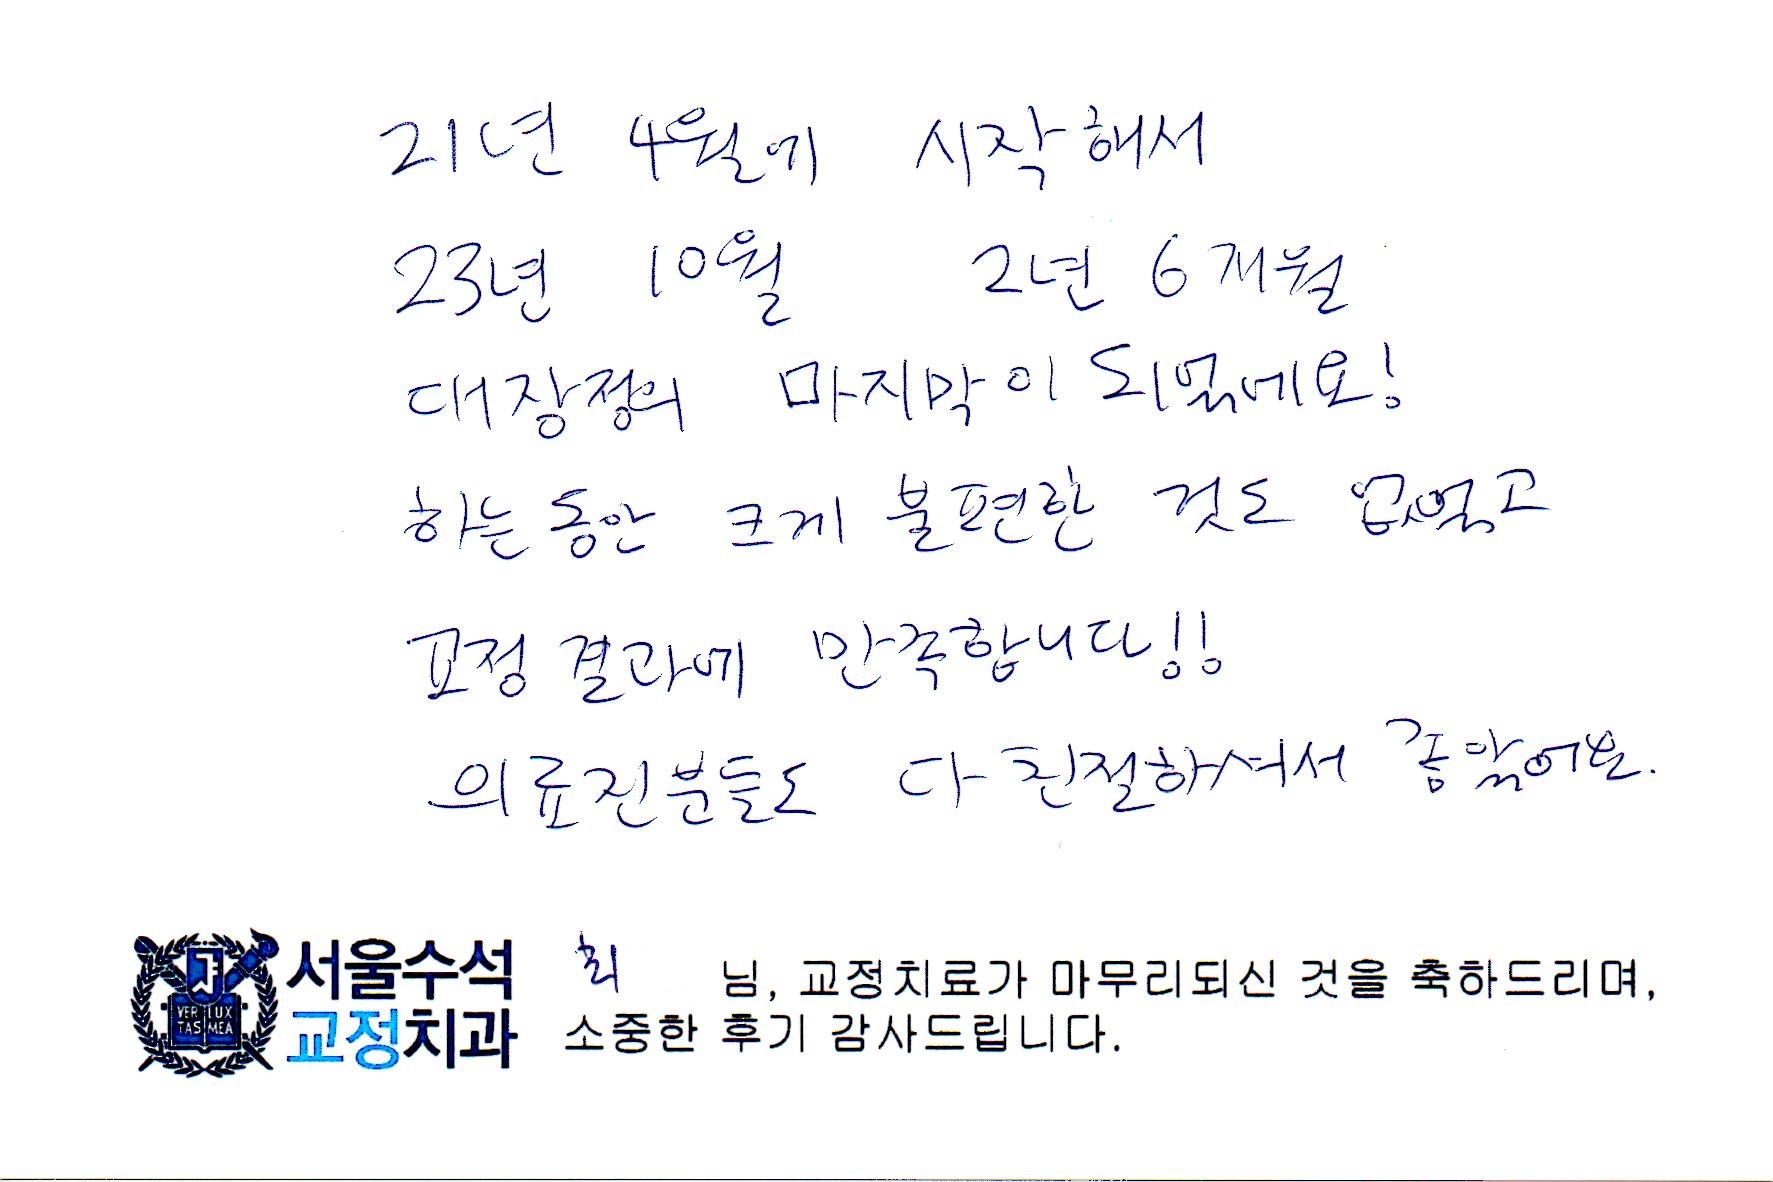 21년 4월에 시작해서
23년 10월 2년 6개월
대장정의 마지막이 되었네요!
하는동안 크게 불편한 것도 없었고
교정 결과에 만족합니다!!
의료진분들도 다 친절하셔서 좋았어요.
서울수석
교정치과
VERI LUX
TAS MEA
최 님, 교정치료가 마무리되신 것을 축하드리며,
소중한 후기 감사드립니다.